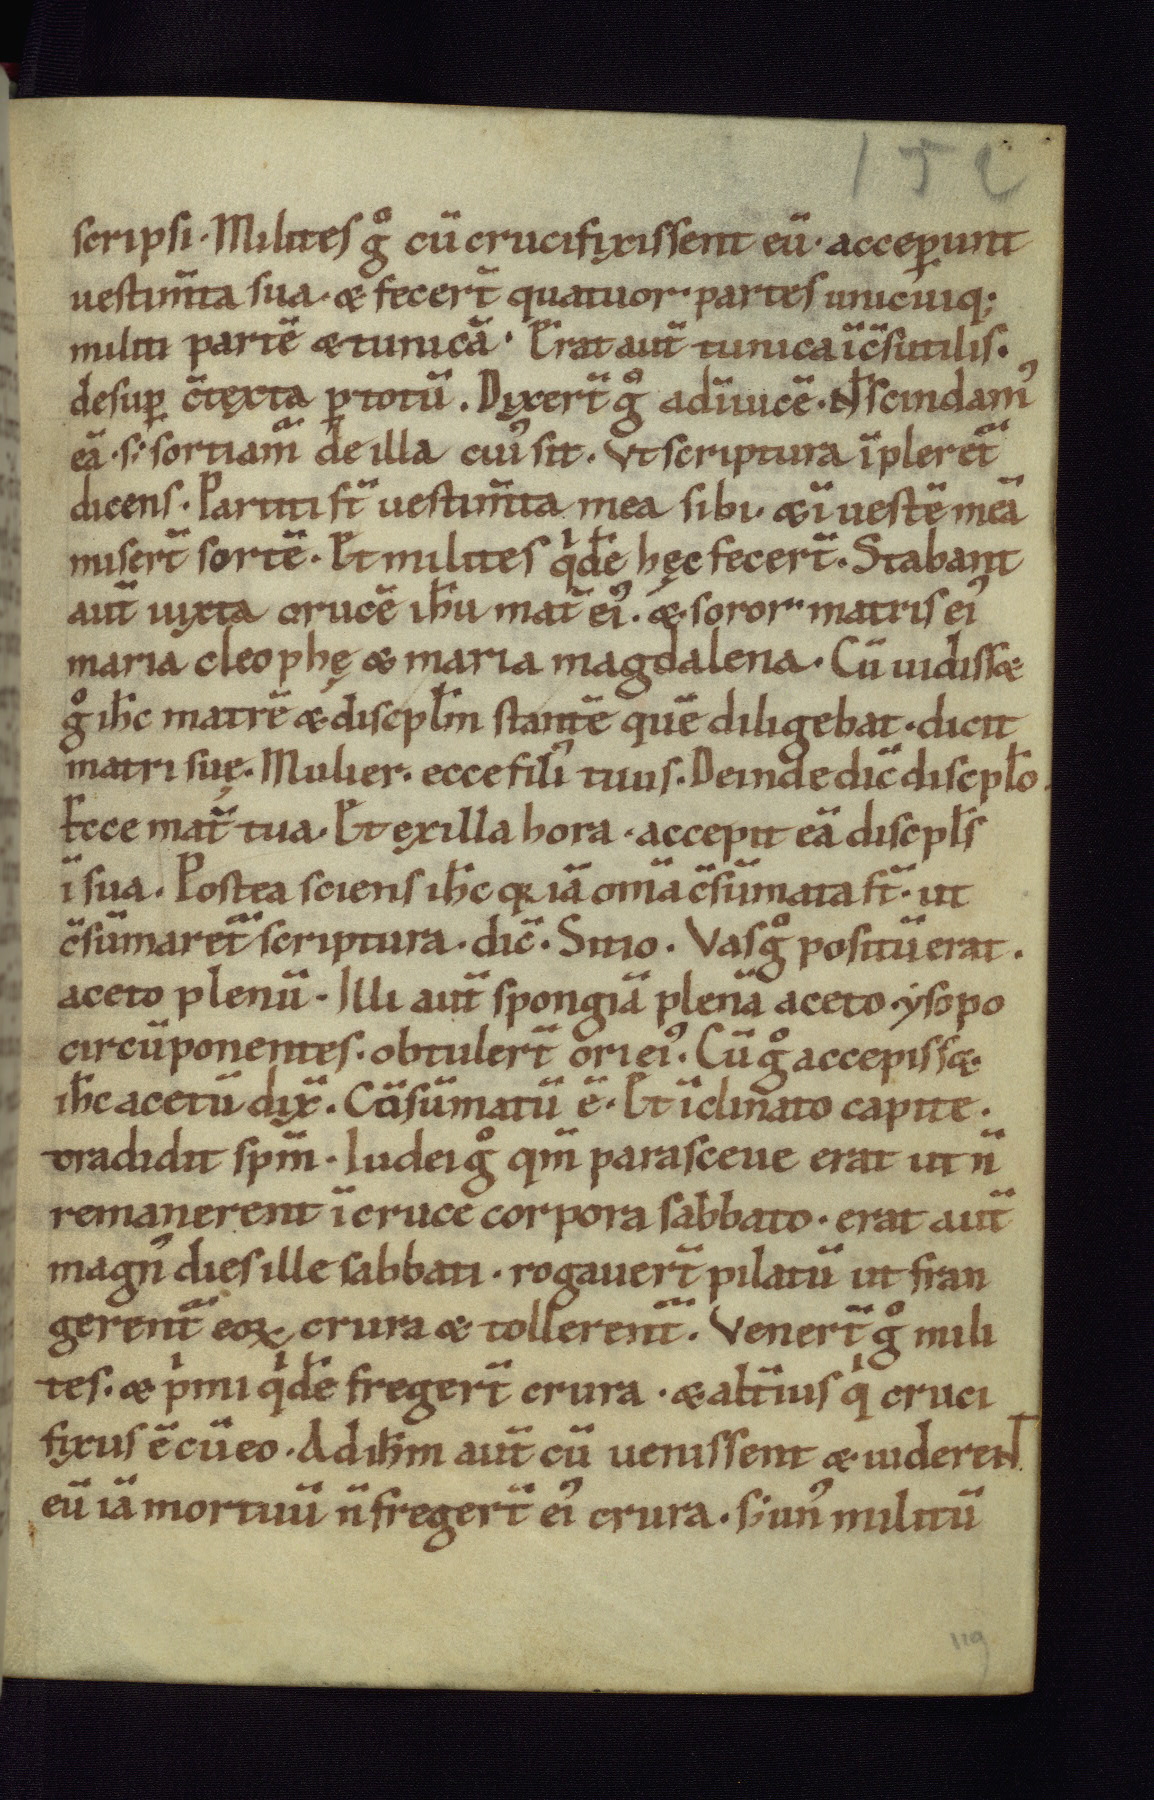 152
scripsi · Milites gͦ cū crucifixissent eū · acceper̄unt
uestim̄ta sua · & fecer̄t quatuor · partes unicuiq;
militi partē & tunicā · Erat aut̄ tunica īc̄sutilis ·
desuꝑ c̄texta ꝑ totū . Dixer̄t gͦ adīuicē · N̄ scindam᾿
eā · s; sortiam̄ de illa cui᾿ sit · Vt scriptura īpleret̄
dicens · Partiti st̄ uestim̄ta mea sibi · & ī uestē meā
miser̄t sortē · Et milites qͥdē hęc fecer̄t · Stabant
aut̄ iuxta crucē ih̄u mat̄ ei᾿ · & soror matris ei᾿
maria cleophę & maria magdalena · Cū uidiss&
gͦ ih̄c matrē & discipl̄m stantē quē diligebat · dicit
matri suę · Mulier · ecce fili᾿ tuus · Deinde dic̄ discipl̄o .
Ecce mat̄ tua · Et exilla hora · accepit eā discipl̄s
ī sua . Postea sciens ih̄c qꝛ iā om̄a c̄sūmata st̄ · ut
c̄sūmaret̄ scriptura · dic̄ · Sitio · Vas gͦ positū erat ·
aceto plenū · Illi aut̄ spongiā plenā aceto · ysopo
circūponentes · obtuler̄t ori ei᾿ · Cū gͦ accepiss& ·
ih̄c acetū dix̄ · Cōsūmatū ē · Et īclinato capite ·
tradidit sp̄m · Iudei gͦ qm̄ parasceue erat ut n̄
remanerent ī cruce corpora sabbato · erat aut̄
magn᾿ dies ille sabbati · rogauer̄t pilatū ut fran
gerent̄ eoꝝ crura & tollerent̄ . Vener̄t gͦ mili
tes · & pͥmi qͥdē freger̄t crura · & alt̄ius qͥ cruci
fixus ē cū eo · Ad ih̄m aut̄ cū uenissent & uiderent
eū iā mortuū n̄ freger̄t ei᾿ crura · s; un᾿ militū
119